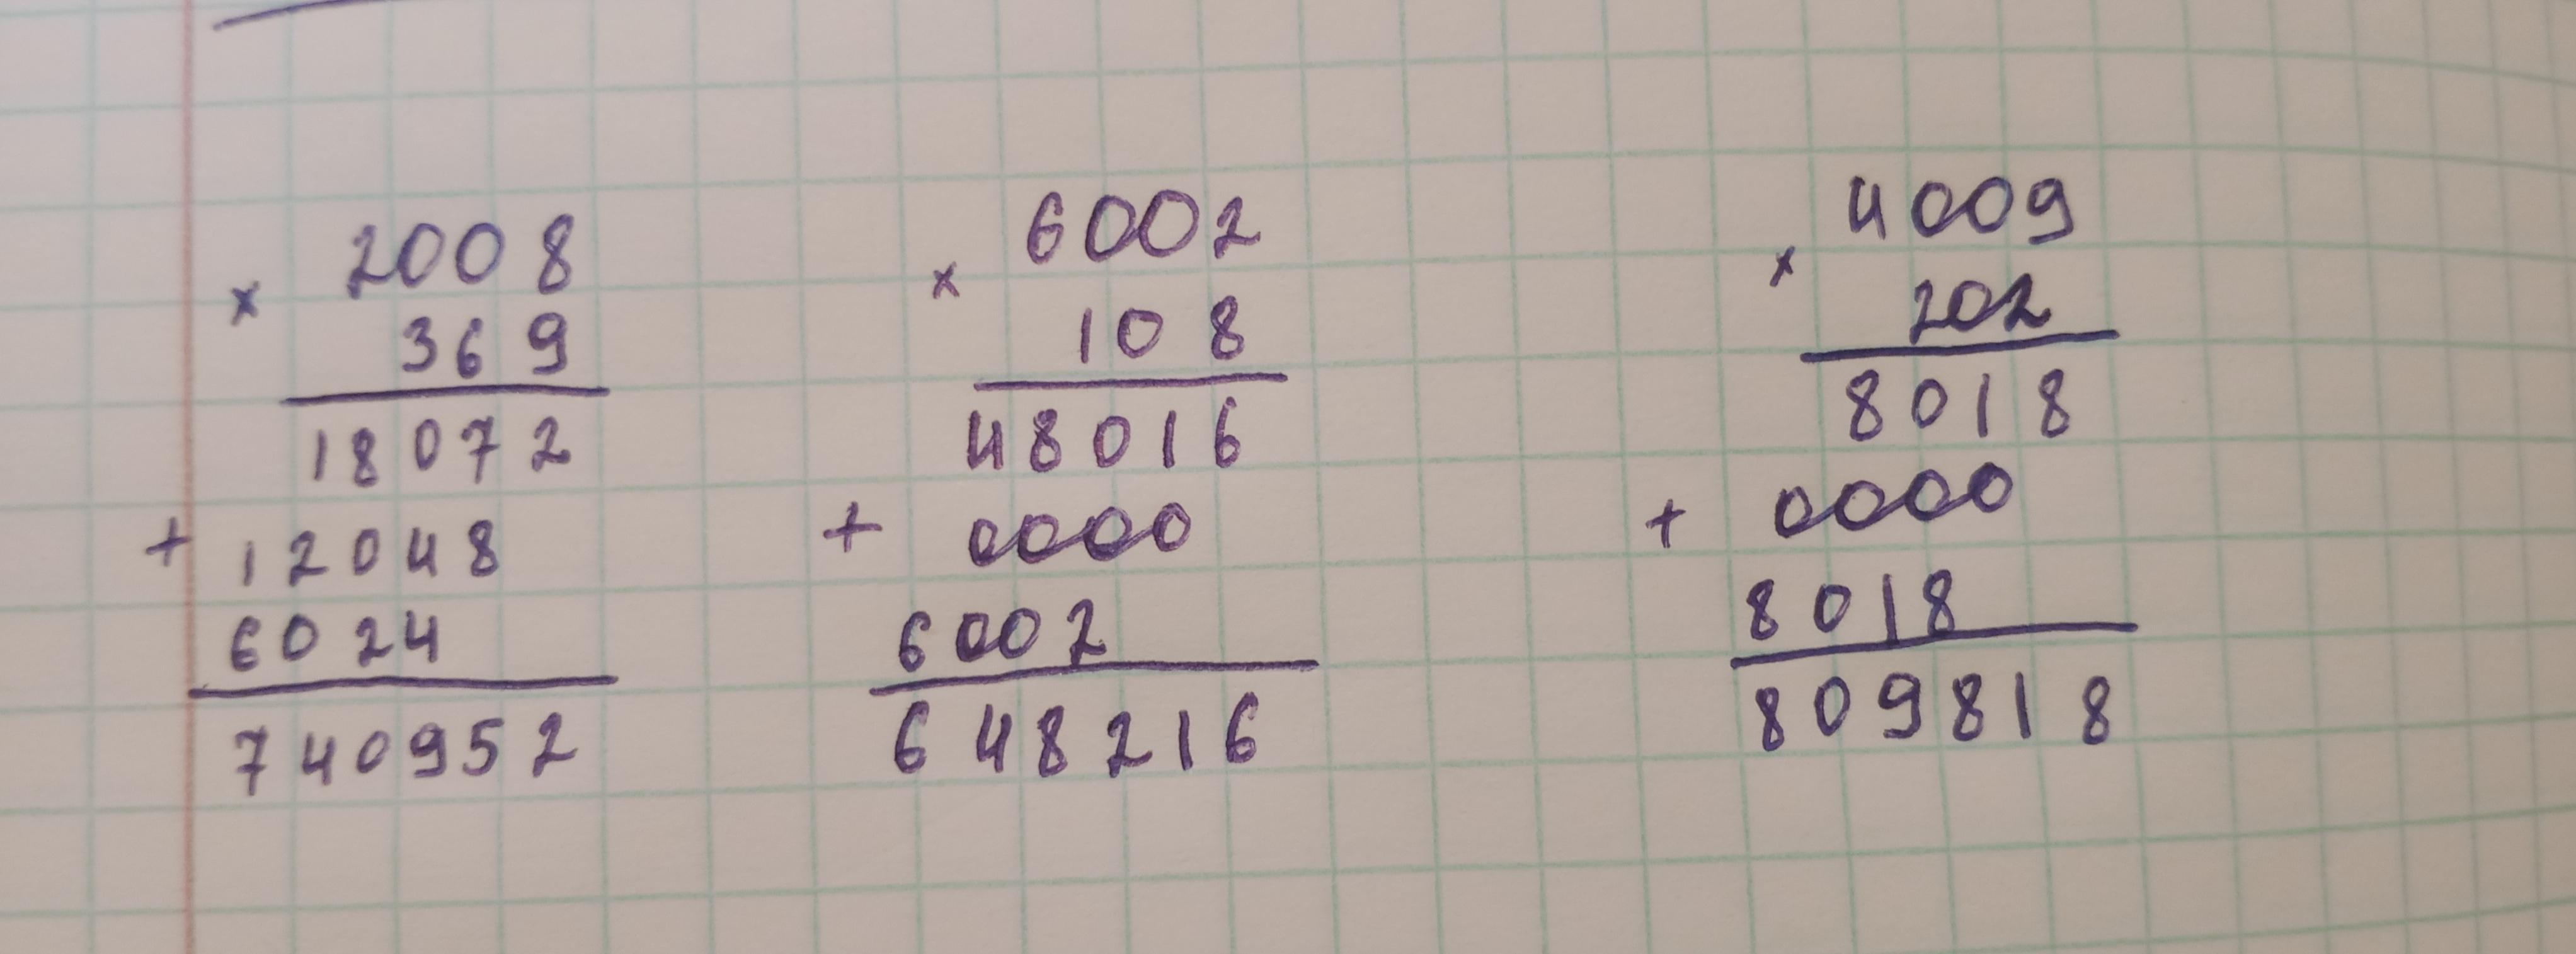 2008
× 369
18072
+ 12048
6024
740952
6002
× 108
48016
+ 0000
6002
648216
4009
× 202
8018
+ 0000
8018
809818